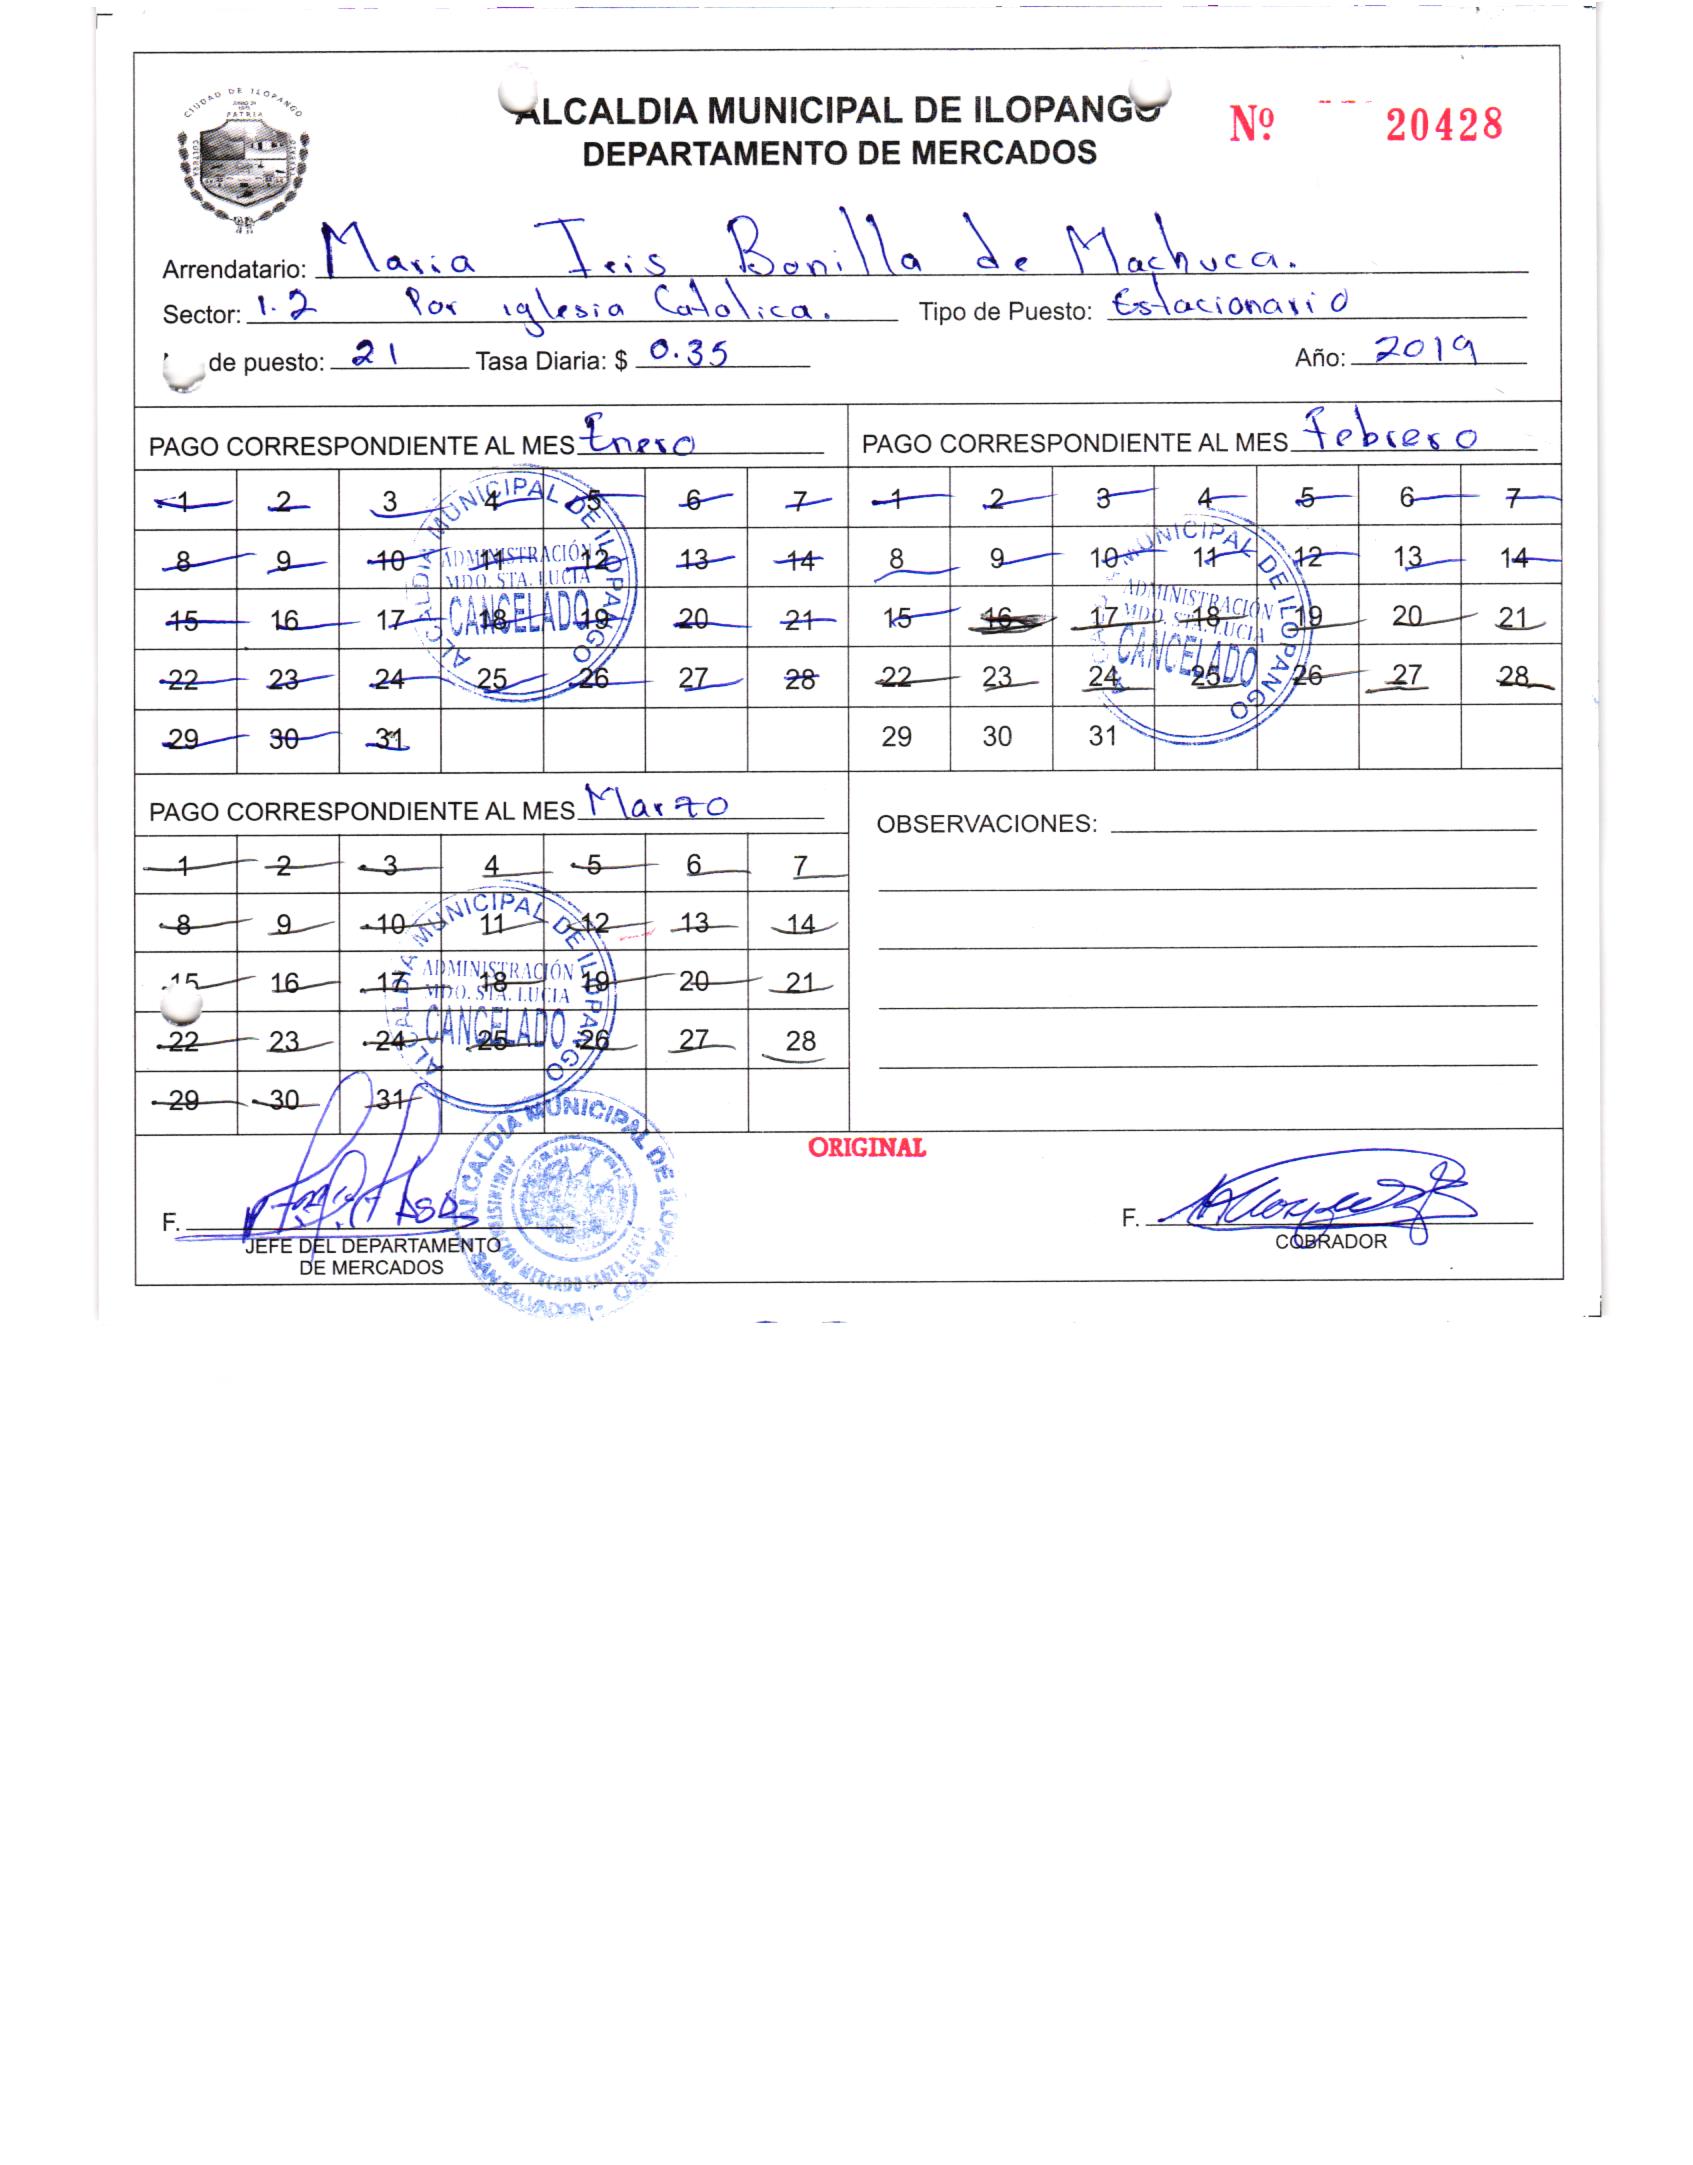 CIUDAD DE ILOPANGO
PATRIA
CULTURA
ALCALDIA MUNICIPAL DE ILOPANGO
DEPARTAMENTO DE MERCADOS
Nº 20428
Arrendatario: Maria Iris Bonilla de Machuca.
Sector: 1.2 Por iglesia Catolica. Tipo de Puesto: Estacionario
de puesto: 21 Tasa Diaria: $ 0.35 Año: 2019
PAGO CORRESPONDIENTE AL MES Enero
1 2 3 4 5 6 7
8 9 10 11 12 13 14
15 16 17 18 19 20 21
22 23 24 25 26 27 28
29 30 31
ALCALDIA MUNICIPAL DE ILOPANGO
ADMINISTRACIÓN
MDO. STA. LUCIA
CANCELADO
PAGO CORRESPONDIENTE AL MES Febrero
1 2 3 4 5 6 7
8 9 10 11 12 13 14
15 16 17 18 19 20 21
22 23 24 25 26 27 28
29 30 31
MUNICIPAL DE ILOPANGO
ADMINISTRACIÓN
MDO. STA. LUCIA
CANCELADO
PAGO CORRESPONDIENTE AL MES Marzo
1 2 3 4 5 6 7
8 9 10 11 12 13 14
15 16 17 18 19 20 21
22 23 24 25 26 27 28
29 30 31
ALCALDIA MUNICIPAL DE ILOPANGO
ADMINISTRACIÓN
MDO. STA. LUCIA
CANCELADO
OBSERVACIONES:
ORIGINAL
F.
JEFE DEL DEPARTAMENTO
DE MERCADOS
ALCALDIA MUNICIPAL DE ILOPANGO
ADMINISTRACION MERCADO SANTA LUCIA
SAN SALVADOR
F.
COBRADOR